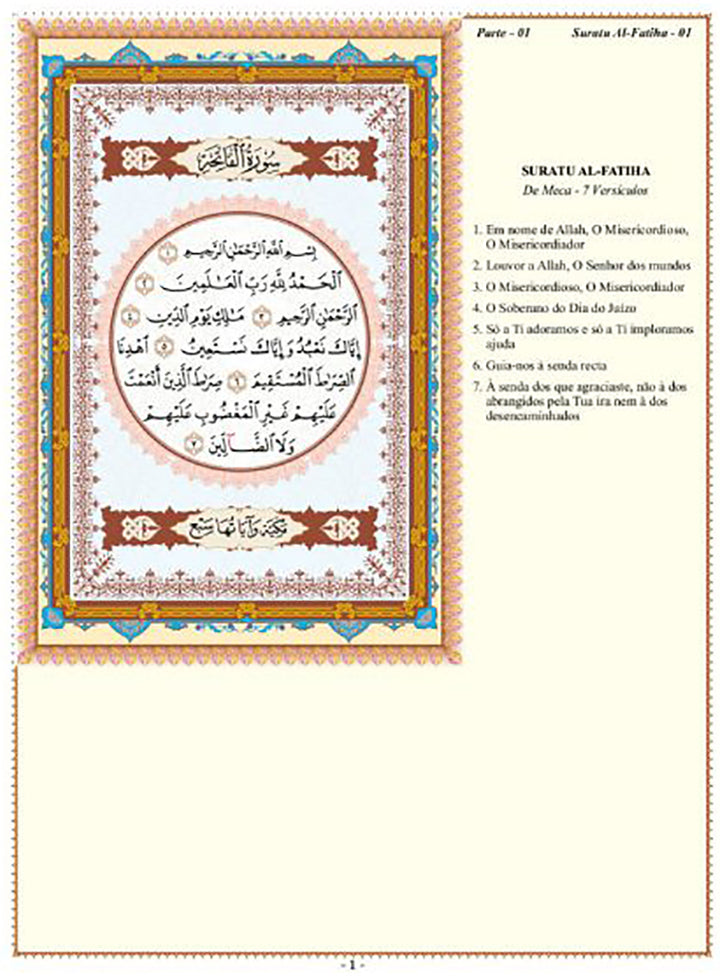 Parte - 01 Suratu Al-Fatiha - 01
سُورَةُ الْفَاتِحَةِ
بِسْمِ اللَّهِ الرَّحْمَٰنِ الرَّحِيمِ ١
الْحَمْدُ لِلَّهِ رَبِّ الْعَالَمِينَ ٢
الرَّحْمَٰنِ الرَّحِيمِ ٣ مَالِكِ يَوْمِ الدِّينِ ٤
إِيَّاكَ نَعْبُدُ وَإِيَّاكَ نَسْتَعِينُ ٥ اهْدِنَا
الصِّرَاطَ الْمُسْتَقِيمَ ٦ صِرَاطَ الَّذِينَ أَنْعَمْتَ
عَلَيْهِمْ غَيْرِ الْمَغْضُوبِ عَلَيْهِمْ
وَلَا الضَّالِّينَ ٧
مَكِّيَّة وَآيَاتُهَا سَبْع
SURATU AL-FATIHA
De Meca - 7 Versículos
1. Em nome de Allah, O Misericordioso,
O Misericordiador
2. Louvor a Allah, O Senhor dos mundos
3. O Misericordioso, O Misericordiador
4. O Soberano do Dia do Juízo
5. Só a Ti adoramos e só a Ti imploramos
ajuda
6. Guia-nos à senda recta
7. À senda dos que agraciaste, não à dos
abrangidos pela Tua ira nem à dos
desencaminhados
- 1 -